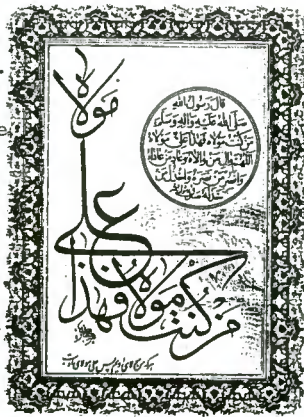 قال رسول الله
صلى الله عليه وآله وسلم
من كنت مولاه فهذا علي مولاه
اللهم وال من والاه وعاد من عاداه
وانصر من نصره واخذل من
خذله
من كنت مولاه فهذا علي مولاه